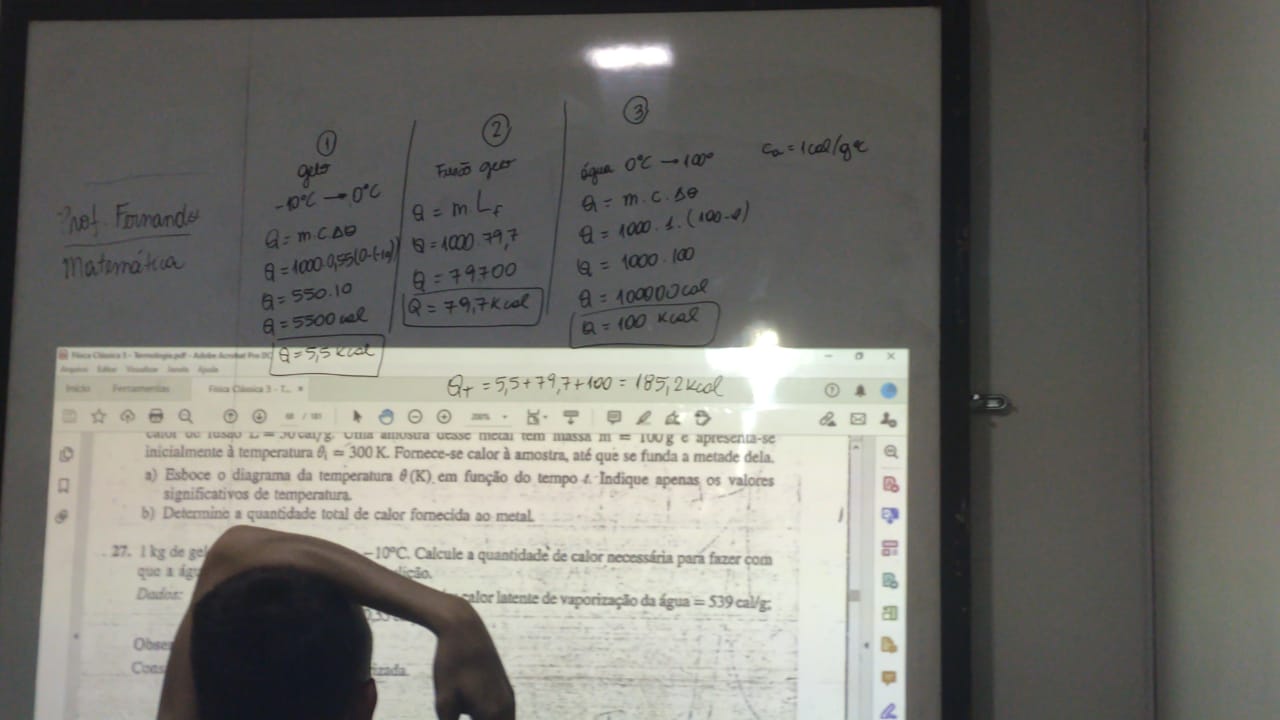 Prof. Fernando
Matemática
1
gelo
-10°C → 0°C
Q = m.c.Δθ
Q = 1000.0,55(0-(-10))
Q = 550.10
Q = 5500 cal
Q = 5,5 Kcal
2
Fusão gelo
Q = m.Lf
Q = 1000.79,7
Q = 79700
Q = 79,7 Kcal
3
água 0°C → 100°
Q = m.c.Δθ
Q = 1000.1.(100-0)
Q = 1000.100
Q = 100000 cal
Q = 100 Kcal
ca = 1cal/g°C
QT = 5,5+79,7+100 = 185,2 kcal
Física Clássica 3 - Termologia.pdf - Adobe Acrobat Pro DC
Arquivo Editar Visualizar Janela Ajuda
Início Ferramentas Física Clássica 3 - T... ×
68 / 181 200%
calor de fusão L = 50 cal/g. Uma amostra desse metal tem massa m = 100 g e apresenta-se
inicialmente à temperatura θi = 300 K. Fornece-se calor à amostra, até que se funda a metade dela.
a) Esboce o diagrama da temperatura θ(K) em função do tempo t. Indique apenas os valores
significativos de temperatura.
b) Determine a quantidade total de calor fornecida ao metal.
27. 1 kg de gel -10°C. Calcule a quantidade de calor necessária para fazer com
que a águ
Dados: calor latente de vaporização da água = 539 cal/g;